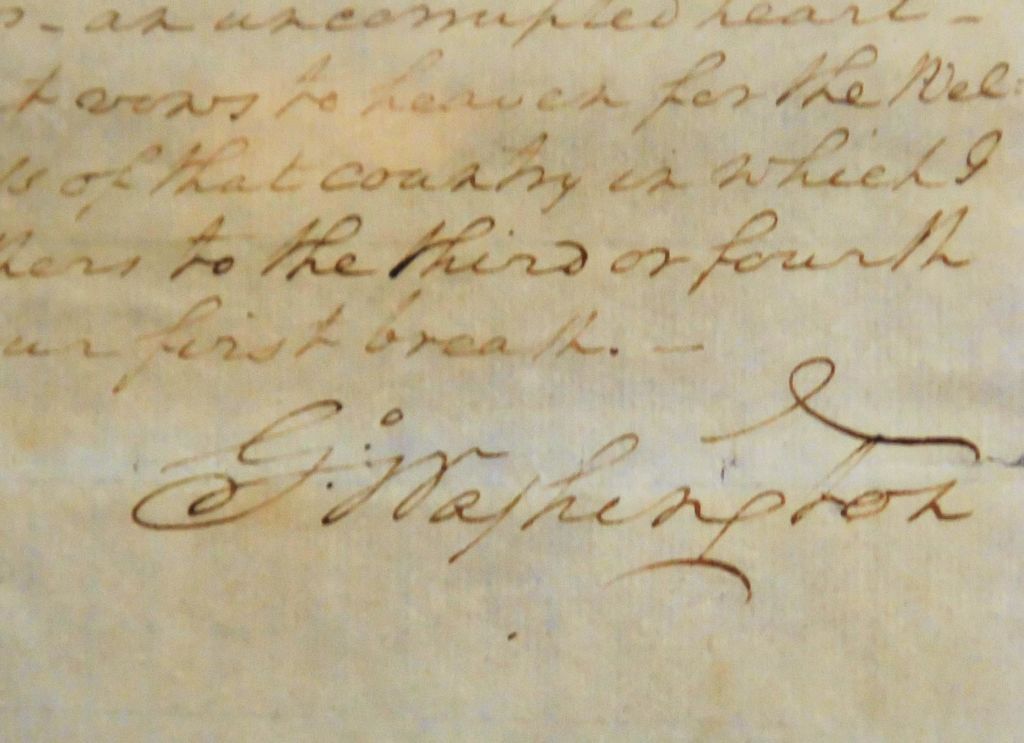 - an uncorrupted heart -
vows to heaven for the Wel:
of that country in which I
to the third or fourth
our first breath. -
G: Washington